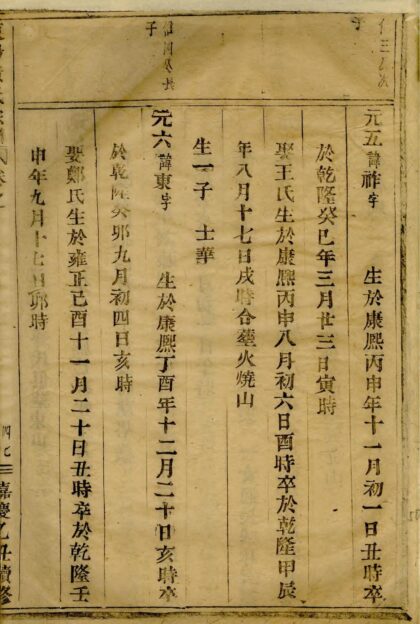 元五諱祚字 生於康熙丙申年十一月初一日丑時卒
於乾隆癸巳年三月廿三日寅時
娶王氏生於康熙丙申八月初六日酉時卒於乾隆甲辰
年八月十七日戌時合塟火燒山
生一子 士華
元六諱東字 生於康熙丁酉年十二月二十日亥時卒
於乾隆癸卯九月初四日亥時
娶鄭氏生於雍正己酉十一月二十日丑時卒於乾隆壬
申年九月十七日卯時
嘉慶乙丑續修